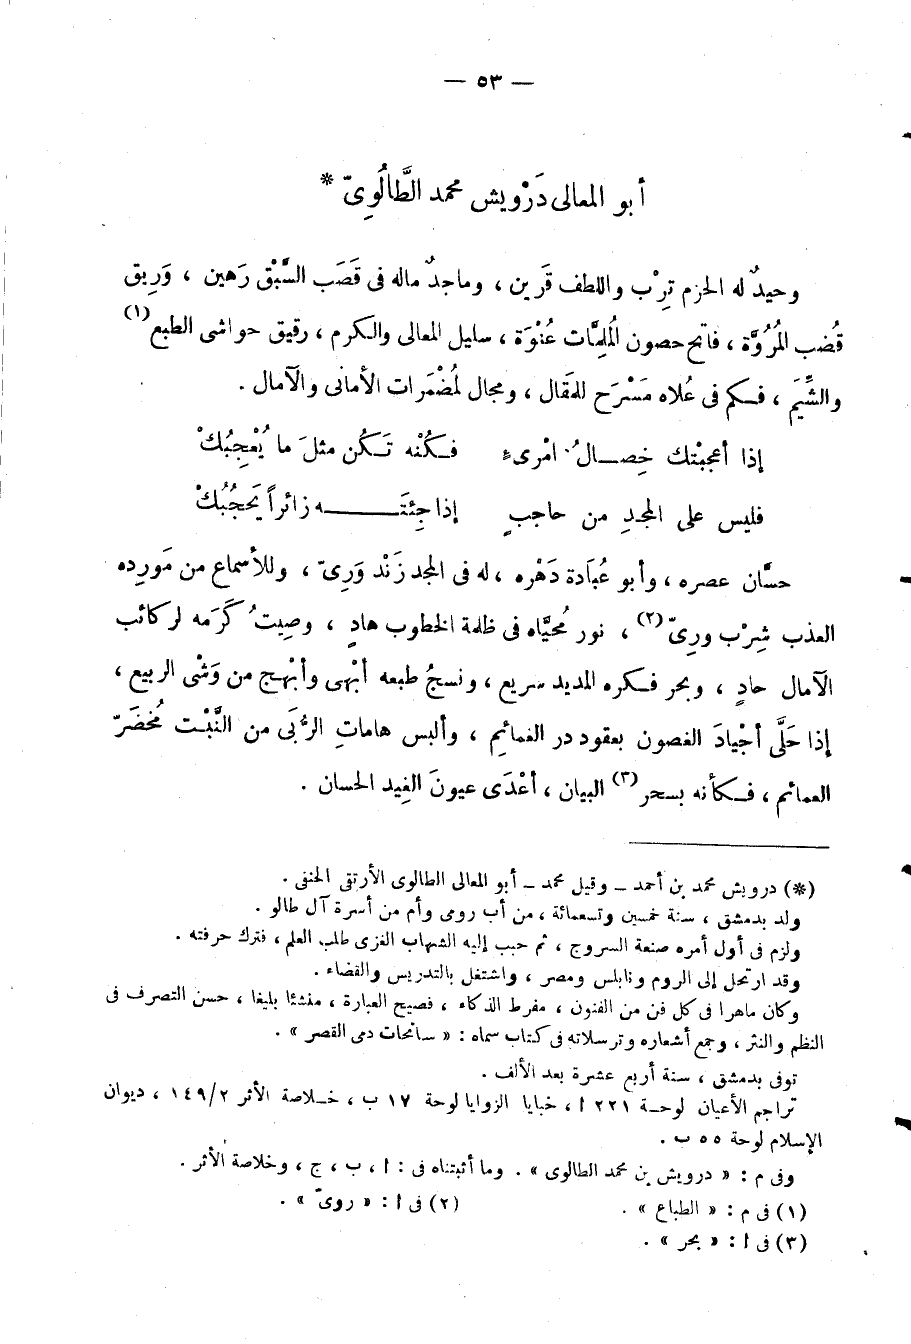 — ٥٣ —
أبو المعالى دَرْويش محمد الطَّالُوِىّ *
وحيدٌ له الحزم تِرْب واللطف قَرين ، وماجدٌ ماله فى قَصَب السَّبْق رَهين ، وَرِيق
قُضب المُرُوَّة ، فاتح حصون المُلِمَّات عُنْوَة ، سليل المعالى والكرم ، رقيق حواشى الطبع (١)
والشِّيَم ، فكم فى عُلاه مَسْرَح للمَقال ، ومجال لمُضْمَرات الأمانى والآمال .
إذا أعجبْتك خِصالُ امْرىءٍ فكُنْه تَكُن مثلَ ما يُعْجِبُكْ
فليس على المجدِ من حاجبٍ إذا جِئتَه زائراً يَحجُبُكْ
حسَّان عصره ، وأبو عُبَادة دَهْره ، له فى المجد زَنْد وَرِىّ ، وللأسماع من مَورِده
العذب شِرْب ورِىّ (٢) ، نور مُحيَّاه فى ظلمة الخطوب هادٍ ، وصِيتُ كَرَمه لركائب
الآمال حادٍ ، وبحر فكره المديد سريع ، ونسجُ طبعه أبْهى وأبْهج من وَشْى الربيع ،
إذا حَلَّى أجْيادَ الغصون بعقود در الغمائِم ، وألبس هاماتِ الرُّبَى من النَّبْت مُخضَرّ
العمائم ، فكأنه بسحر (٣) البيان ، أعْدَى عيونَ الغِيد الحسان .
(*) درويش محمد بن أحمد ــ وقيل محمد ــ أبو المعالى الطالوى الأرتقى الحنفى .
ولد بدمشق ، سنة خمسين وتسعمائة ، من أب رومى وأم من أسرة آل طالو .
ولزم فى أول أمره صنعة السروج ، ثم حبب إليه الشهاب الغزى طلب العلم ، فترك حرفته .
وقد ارتحل إلى الروم ونابلس ومصر ، واشتغل بالتدريس والقضاء .
وكان ماهرا فى كل فن من الفنون ، مفرط الذكاء ، فصيح العبارة ، منشئا بليغا ، حسن التصرف فى
النظم والنثر ، وجمع أشعاره وترسلاته فى كتاب سماه : « سانحات دمى القصر » .
توفى بدمشق ، سنة أربع عشرة بعد الألف .
تراجم الأعيان لوحة ٢٢١ ا ، خبايا الزوايا لوحة ١٧ ب ، خلاصة الأثر ١٤٩/٢ ، ديوان
الإسلام لوحة ٥٥ ب .
وفى م : « درويش بن محمد الطالوى » . وما أثبتناه فى : ا ، ب ، ج ، وخلاصة الأثر .
(١) فى م : « الطباع » . (٢) فى ا : « روىّ » .
(٣) فى ا : « بحر » .